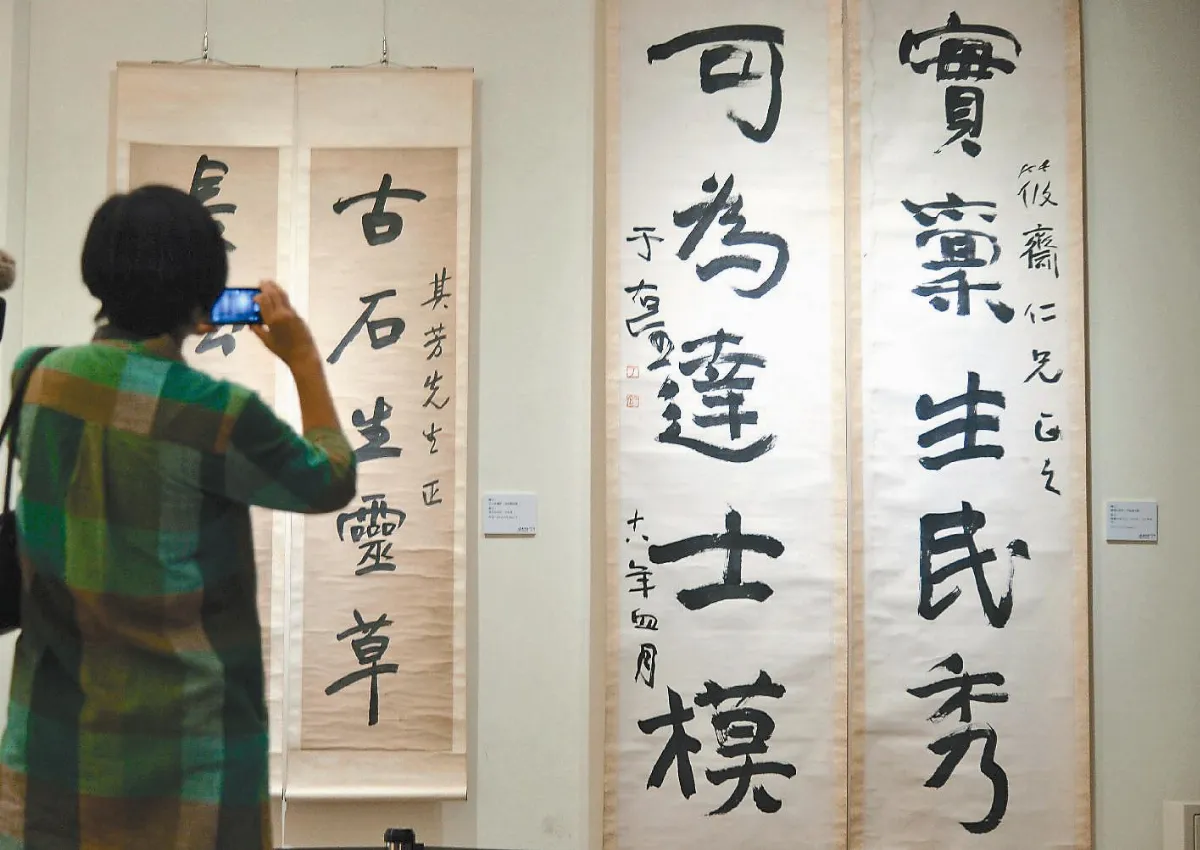 筱齋仁兄正之
實稟生民秀
可為達士模
于右任
十六年四月
其芳先生正
古石生靈草
長